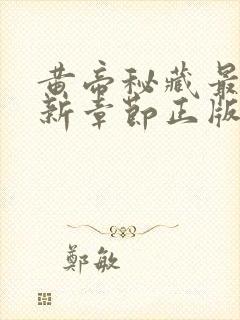 黄帝秘藏最
新章節正版
鄭敏